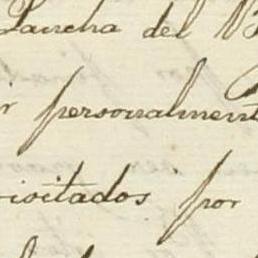 Lancha del
r personalment
visitados por